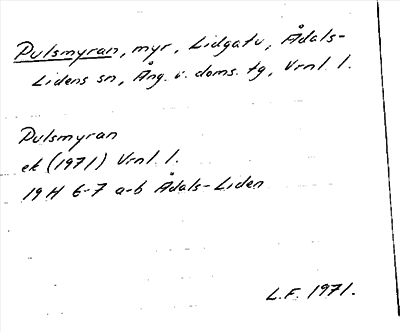 Pulsmyran, myr, Lidgatu, Ådals-
Lidens sn, Ång. v. doms. tg, Vrnl. l.
Pulsmyran
ek (1971) Vrnl. l.
19 H 6-7 a-b Ådals-Liden
L.F. 1971.